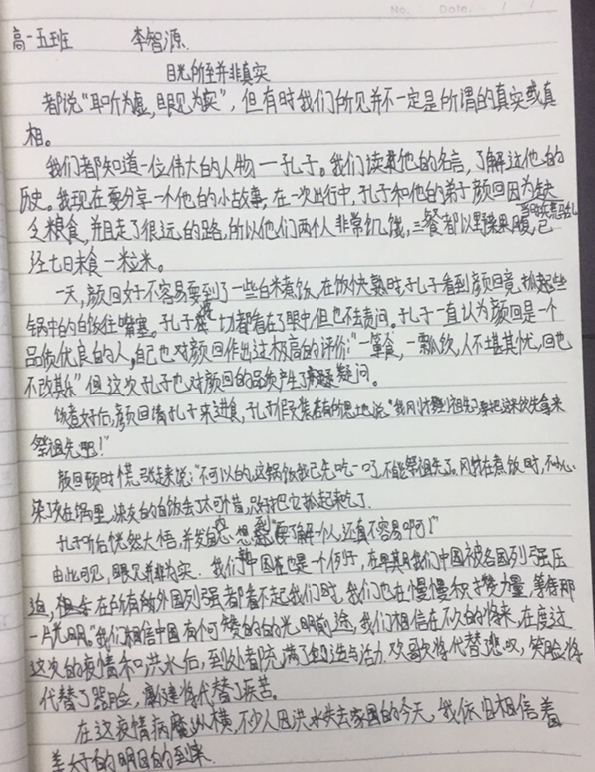 No. Date. / /
高一五班 李智源
目光所至并非真实
都说“耳听为虚,眼见为实”,但有时我们所见并不一定是所谓的真实或真
相。
我们都知道一位伟大的人物一孔子。我们读熟他的名言,了解过他的
历史。我现在要分享一个他的小故事,在一次出行中,孔子和他的弟子颜回因为缺
乏粮食,并且走了很远的路,所以他们两个人非常饥饿,三餐都以野果果腹,已
经七日未食一米粒。
一天,颜回好不容易要到了一些白米煮饭,在饭快熟时孔子看到颜回竟抓起些
锅中的白饭往嘴塞。孔子一切都看在了眼中,但也不去责问。孔子一直认为颜回是一个
品质优良的人,自己也对颜回作出过极高的评价:“一箪食,一瓢饮,人不堪其忧,回也
不改其乐”但这次孔子也对颜回的品质产生了疑问。
饭煮好后,颜回请孔子来进食,孔子假装若有所思地说:“我刚才梦到祖先要把这米饭先拿来
祭祖先吧!”
颜回顿时慌张起来说:“不可以的,这锅饭我已先吃一口了,不能祭祖先了。刚我在煮饭时,不小心
染灰在锅里,染灰的白饭丢了太可惜,只好把它抓起来吃了.
孔子听后恍然大悟,并发自心想到“要了解一个人,还真不容易啊!”
由此可见,眼见并非为实.我们中国在也是一个例子,在早期我们中国被各国列强压
迫,在所有外国列强都看不起我们时,我们也在慢慢积攒力量,等待那
一片光明。“我们相信中国有个可赞的的光明前途,我们相信在不久的将来,在度过
这次的疫情和洪水后,到处都充满了创造与活力,欢歌将代替悲叹,笑脸将
代替了哭脸,康健将代替了疾苦。
在这疫情病魔纵横,不少人因洪水失去家园的今天,我依旧相信着
美好的明日的到来